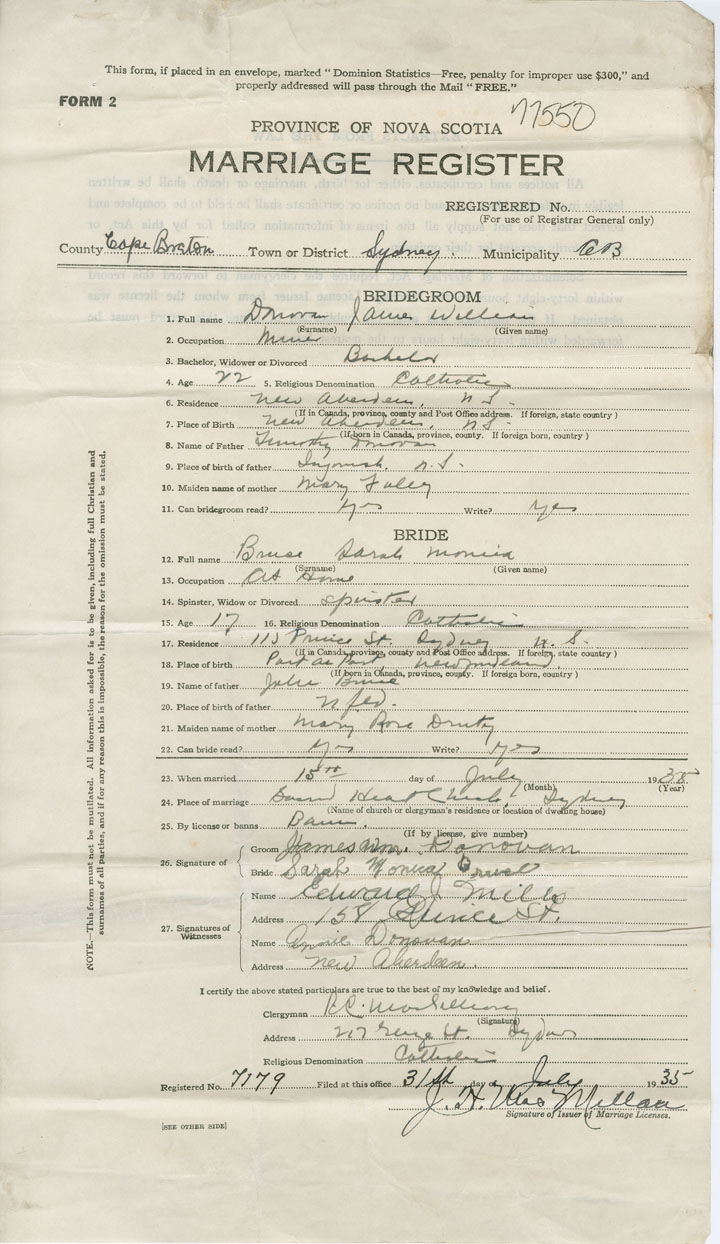 This form, if placed in an envelope, marked "Dominion Statistics—Free, penalty for improper use $300," and
properly addressed will pass through the Mail "FREE."
FORM 2
77550
PROVINCE OF NOVA SCOTIA
MARRIAGE REGISTER
REGISTERED No.
(For use of Registrar General only)
County Cape Breton Town or District Sydney. Municipality CB
BRIDEGROOM
1. Full name Donovan James William
(Surname) (Given name)
2. Occupation Miner
3. Bachelor, Widower or Divorced Bachelor
4. Age 22 5. Religious Denomination Catholic
6. Residence New Aberdeen, N S.
(If in Canada, province, county and Post Office address. If foreign, state country)
7. Place of Birth New Aberdeen, N.S.
(If born in Canada, province, county. If foreign born, country)
8. Name of Father Timothy Donovan
9. Place of birth of father Ingonish. N.S.
10. Maiden name of mother Mary Foley
11. Can bridegroom read? Yes Write? Yes
BRIDE
12. Full name Bruce Sarah Monica
(Surname) (Given name)
13. Occupation At Home
14. Spinster, Widow or Divorced Spinster
15. Age 17 16. Religious Denomination Catholic
17. Residence 115 Prince St. Sydney N.S.
(If in Canada, province, county and Post Office address. If foreign, state country)
18. Place of birth Port au Port Newfoundland
(If born in Canada, province, county. If foreign born, country)
19. Name of father Bruce
20. Place of birth of father Nfld.
21. Maiden name of mother Mary Rose
22. Can bride read? Yes Write? Yes
23. When married 15th day of July 1935
(Month) (Year)
24. Place of marriage Sacred Heart Church, Sydney
(Name of church or clergyman's residence or location of dwelling house)
25. By license or banns Banns
(If by license, give number)
26. Signature of
Groom James Wm. Donovan
Bride Sarah Monica
27. Signatures of Witnesses
Name Edward J. Mills
Address 158 St.
Name Annie Donovan
Address New Aberdeen.
I certify the above stated particulars are true to the best of my knowledge and belief.
Clergyman
(Signature)
Address George St. Sydney
Religious Denomination Catholic
Registered No. 7179 Filed at this office 31st day of July 1935
J. H. MacMillan
Signature of Issuer of Marriage Licenses.
[SEE OTHER SIDE]
NOTE.—This form must not be mutilated. All information asked for is to be given, including full Christian and
surnames of all parties, and if for any reason this is impossible, the reason for the omission must be stated.